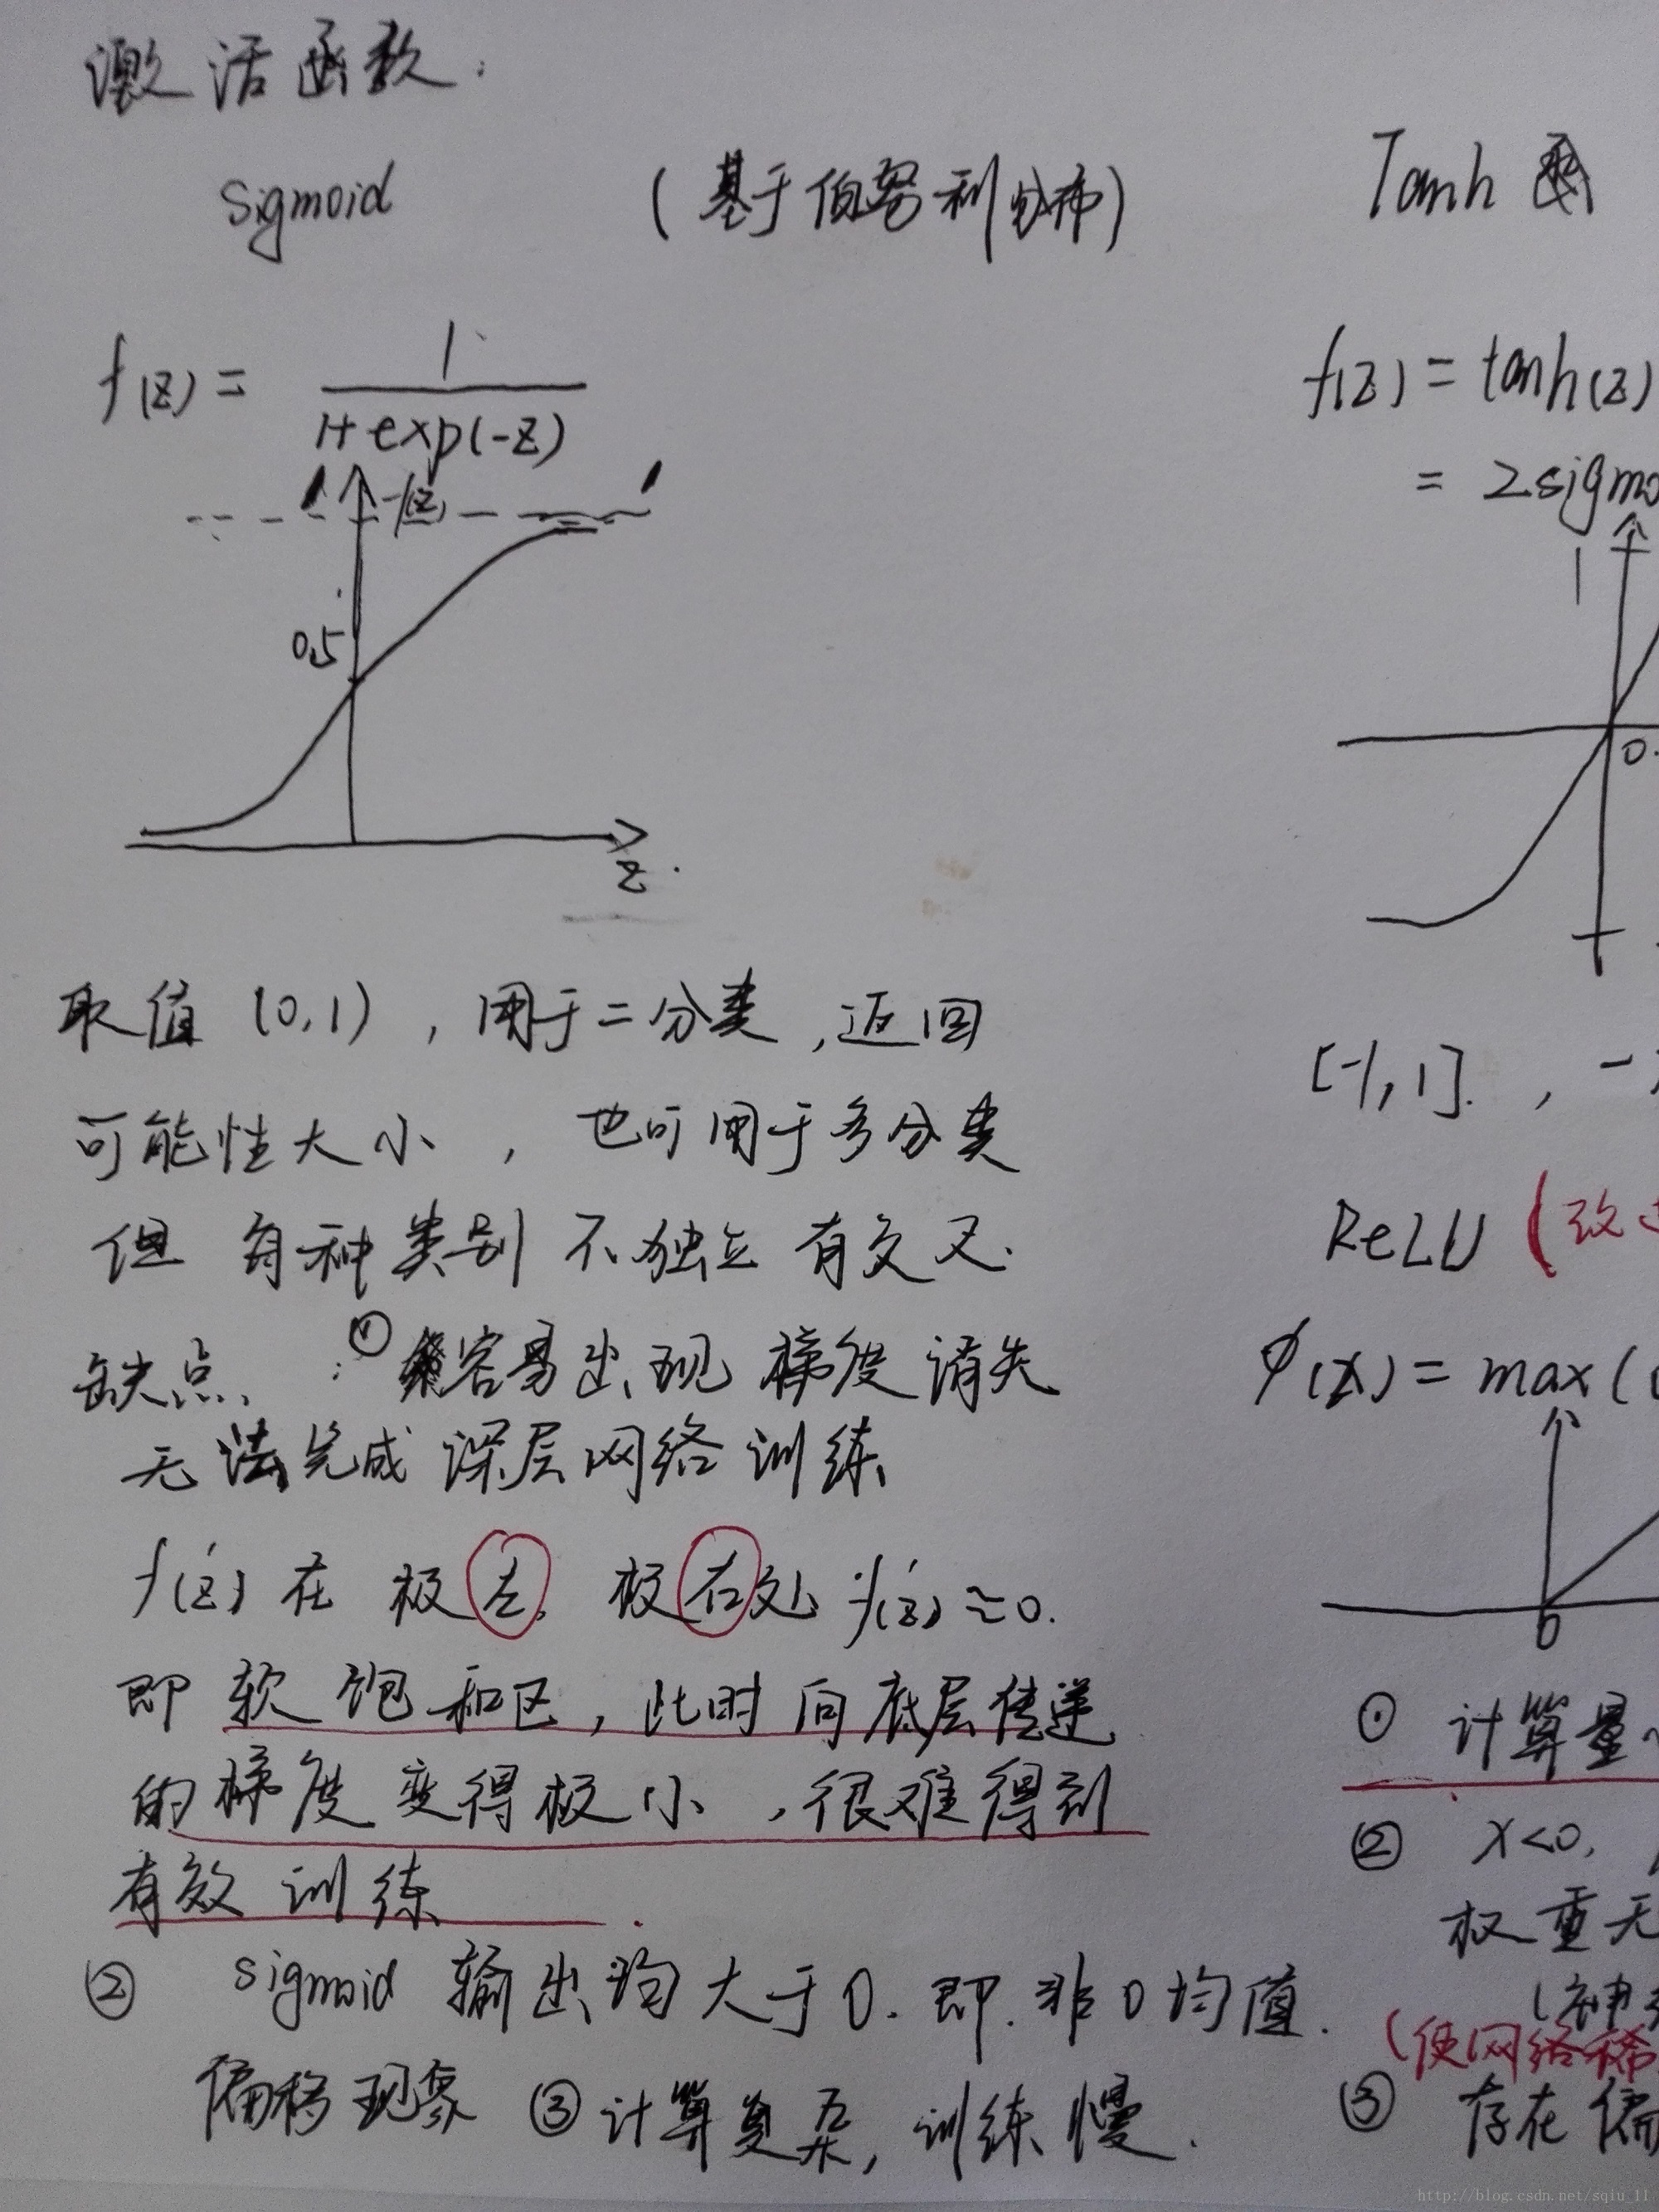 激活函数:
sigmoid (基于伯努利分布)
f(z) = 1 / 1+exp(-z)
1 f(z) 1
0.5
z
取值 (0,1) ,用于二分类,返回
可能性大小 , 也可用于多分类
但 每种类别 不独立 有交叉.
缺点 : ① 容易出现 梯度消失
无法完成 深层网络 训练
f'(z) 在 极左, 极右处 f'(z)≈0.
即 软饱和区, 此时向底层传递
的梯度变得极小 ,很难得到
有效 训练.
② sigmoid 输出均大于0. 即. 非0均值.
偏移现象 ③ 计算复杂, 训练慢.
Tanh
f(z) = tanh(z)
= 2sigmo
1
0
[-1,1]. , -
ReLU (改
φ(x) = max(
0
① 计算量
② x<0,
权重无
(神
(使网络稀
③ 存在偏
http://blog.csdn.net/sqiu_11